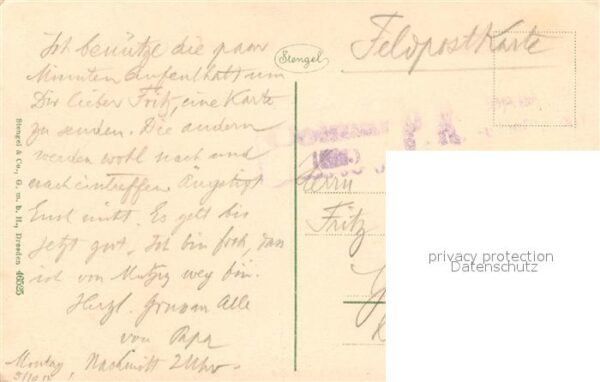 Ich benütze die paar
Minuten Aufenthalt, um
Dir lieber Fritz, eine Karte
zu senden. Die andern
werden wohl nach und
nach eintreffen. Ängstigt
Euch nicht. Es geht bis
jetzt gut. Ich bin froh, dass
ich von Mutzig weg bin.
Herzl. Alle
von Papa
Montag, Nachmitt 2 Uhr
Stengel
Feldpostkarte
Herrn
Fritz
Stengel & Co., G. m. b. H., Dresden 46525
privacy protection
Datenschutz